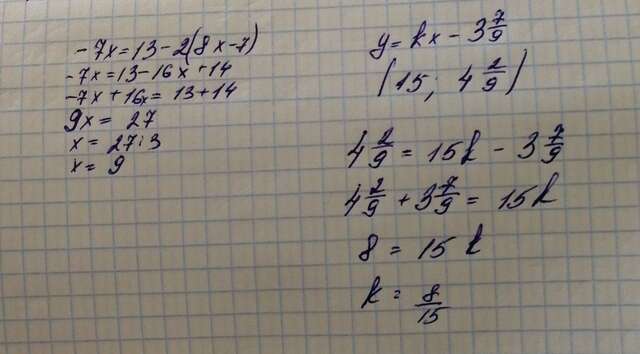 -7x=13-2(8x-7)
-7x=13-16x+14
-7x+16x=13+14
9x=27
x=27:3
x=9
y=kx-3 7/9
(15; 4 2/9)
4 2/9=15k-3 7/9
4 2/9+3 7/9=15k
8=15k
k=8/15